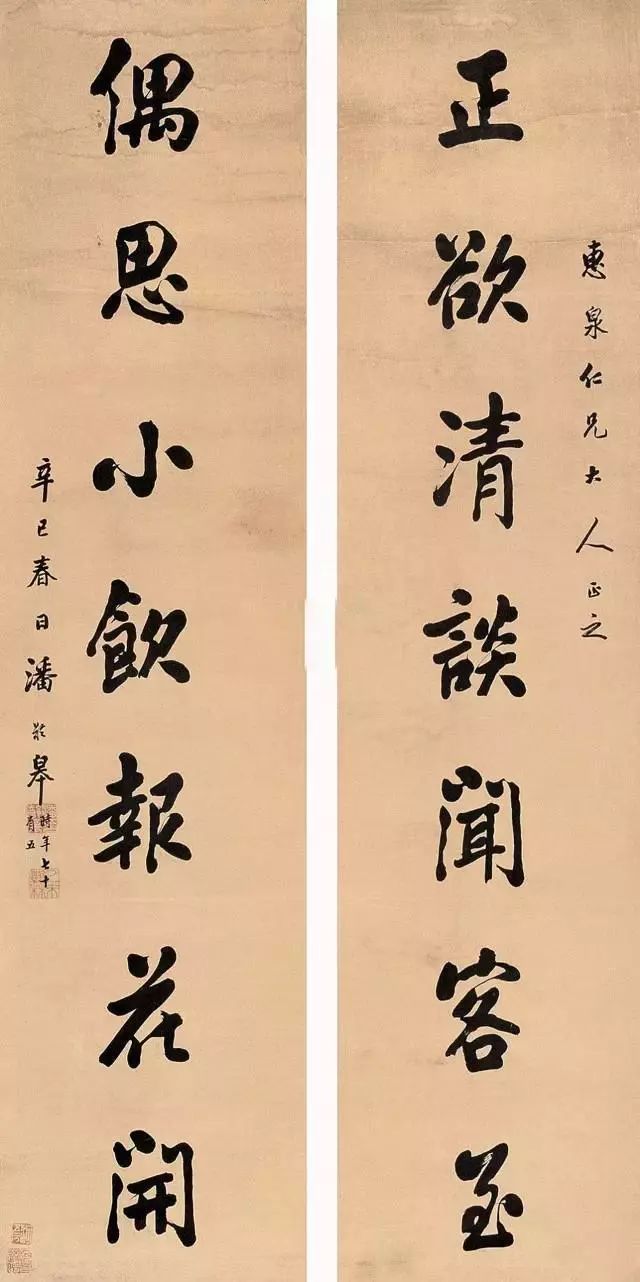 惠泉仁兄大人正之
正欲清談聞客至
偶思小飲報花開
辛巳春日潘齡皋
時年七十
有五